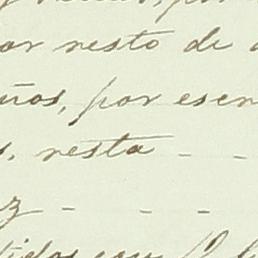 por
or resto de
ños, por esen
s, resta - -
z - - -
tidos con